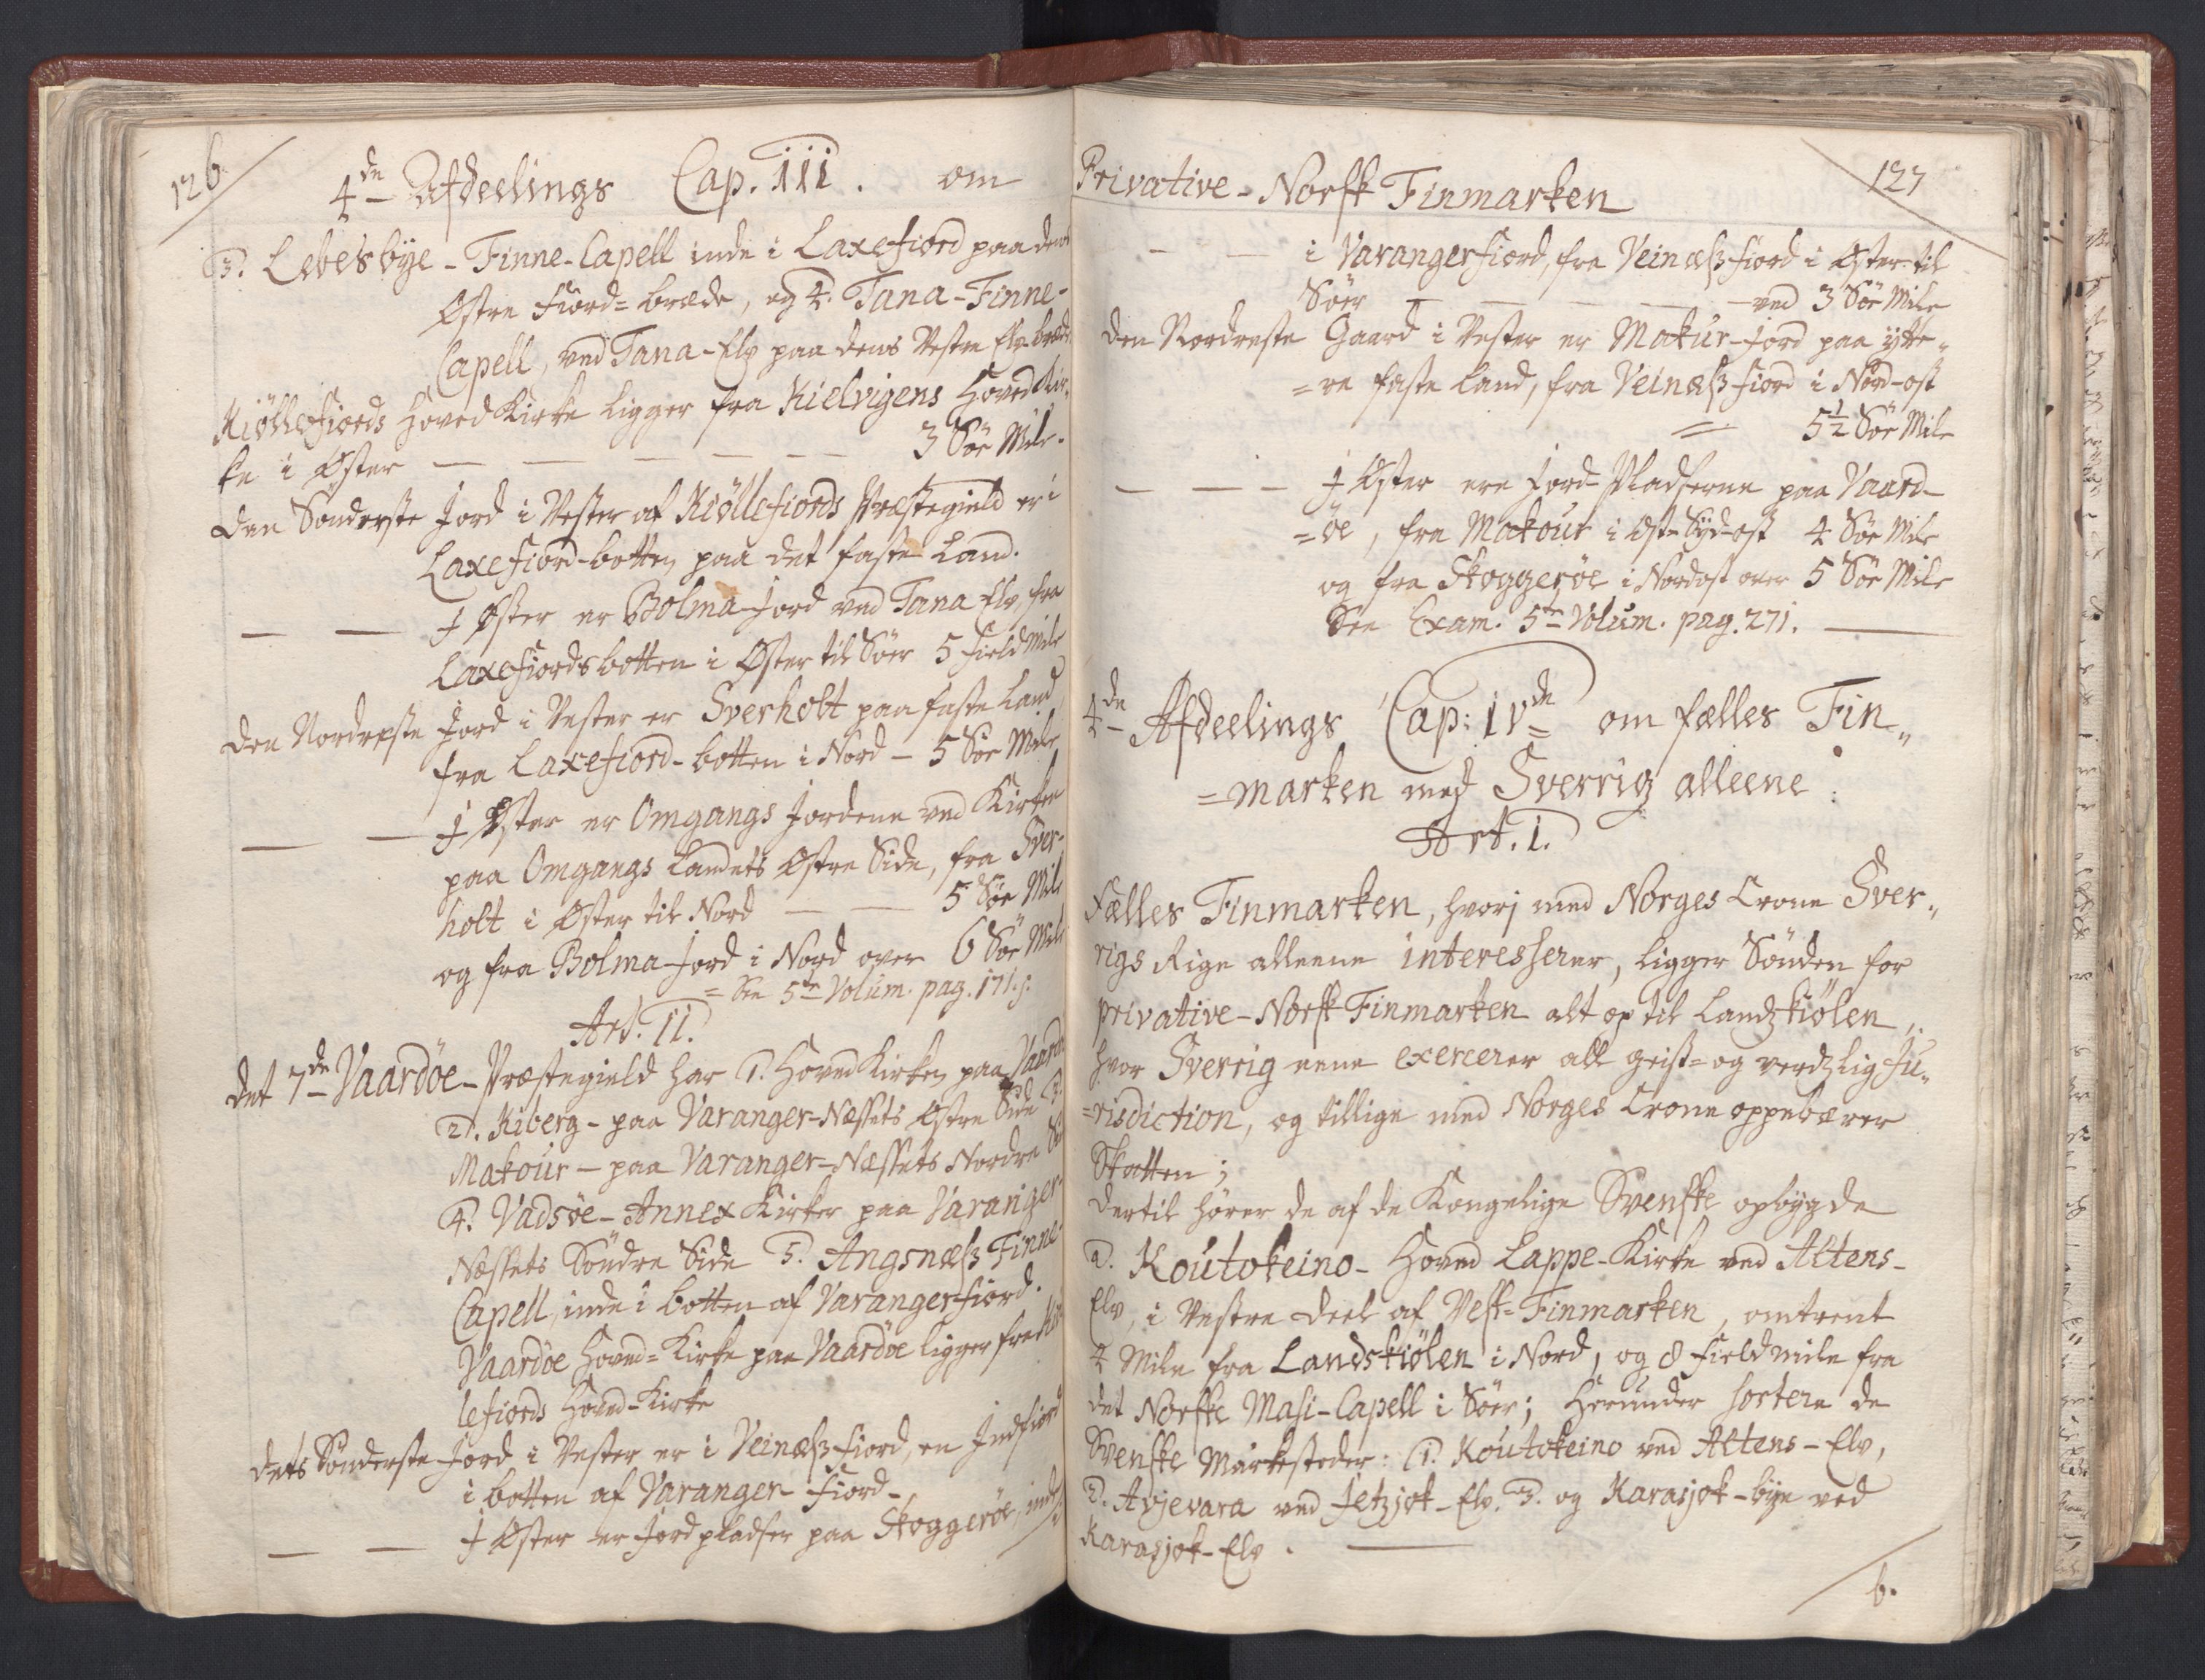 126
4de Afdeelings Cap. III. om
3. Lebesbÿe-Finne-Capell inde i Laxefiord paa dens
Østre Fiord-bræde, og 4. Tana-Finne-
Capell, ved Tana-Elv paa dens Vestre Elvbræd.
Kiöllefiords Hoved Kirke ligger fra Kielvigens Hoved Kir-
ke i Øster — — — — — 3 Söe Mile.
Den Sönderste Jord i Vester af Kiöllefiords Præstegield er i
Laxefiord-botten paa det faste Land.
— — I Øster er Bolma-Jord ved Tana Elv, fra
Laxefiords botten i Øster til Söer 5 Field Mile
Den Nordreste Jord i Vester er Sverholt paa faste Land
fra Laxefiord-botten i Nord — 5 Söe Mile
— — I Øster er Omgangs Jordene ved Kirken
paa Omgangs Landets Østre Side, fra Sver-
holt i Øster til Nord — — 5 Söe Mile
og fra Bolma-Jord i Nord over 6 Söe Mile
= See 5te Volum. pag. 171.
Art. II.
Det 7de Vaardöe-Præstegield har 1. Hoved Kirken paa Vaardö
2. Kiberg - paa Varanger-Næssets Østre Side 3.
Makour - paa Varanger-Næssets Nordre Sid
4. Vadsöe-Annex Kirker paa Varanger-
Næssets Söndre Side 5. Angsnæss Finne-
Capell, inde i botten af Varangerfiord.
Vaardöe Hoved-Kirke paa Vaardöe ligger fra Kiöl
lefiords Hoved-Kirke
Dets Sönderste Jord i Vester er i Veinæssfiord, en Indfiord
i botten af Varanger Fiord-
— — I Øster er Jordpladser paa Skoggeröe, inde
Privative-Norsk Finmarken 127
— — i Varangerfiord, fra Veinæssfiord i Øster til
Söer — — — — ved 3 Söe Mile
Den Nordreste Gaard i Vester er Makur-Jord paa ytte-
=re faste Land, fra Veinæssfiord i Nord-ost
= 5 1/2 Söe Mile
— — — I Øster ere Jord-Pladserne paa Vaard-
=öe, fra Makour i Ost-Syd-ost 4 Söe Mile
og fra Skoggeröe i Nordost over 5 Söe Mile
See Exam. 5te Volum. pag. 271. —
4de Afdeelings Cap: IVde om fælles Fin-
=marken med Sverrig alleene:
Art. I.
Fælles Finmarken, hvorj med Norges Crone Sver-
rigs Rige alleene interesserer, ligger Sönden for
privative-Norsk Finmarken alt op til Landzkiölen,
hvor Sverrig eene exercerer all geist- og verdzlig Ju-
=risdiction, og tillige med Norges Crone oppebærer
Skatten;
Dertil hörer de af de Kongelige Svenske opbÿgde
a. Koutokeino- Hoved Lappe-Kirke ved Altens-
Elv, i Vestre deel af Vest-Finmarken, omtrent
4 Mile fra Landskiölen i Nord, og 8 Fieldmile fra
det Norske Masi-Capell i Söer; Herunder sortere de
Svenske Markesteder: 1. Koutokeino ved Altens-Elv,
2. Avjevara ved Jetzjok-Elv. 3. og Karasjok-bÿe ved
Karasjok-Elv. —
b.